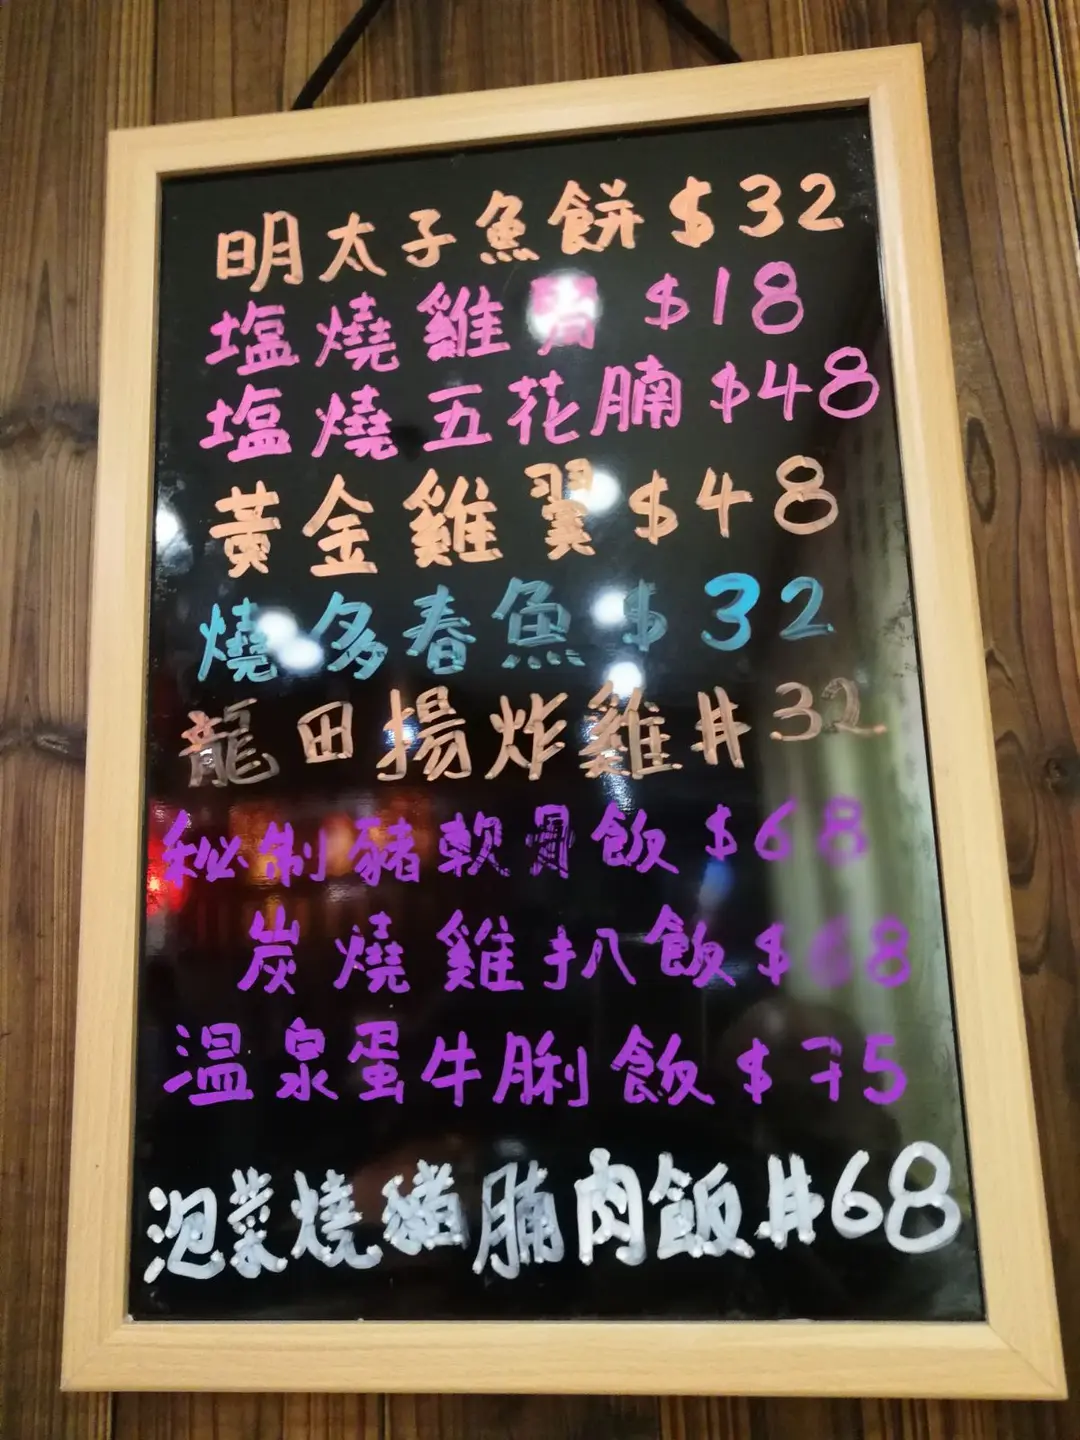 明太子魚餅$32
塩燒雞 $18
塩燒五花腩$48
黃金雞翼$48
燒多春魚$32
龍田揚炸雞井32
秘制豬軟骨飯$68
炭燒雞扒飯$68
温泉蛋牛脷飯$75
泡菜燒豬腩肉飯井68